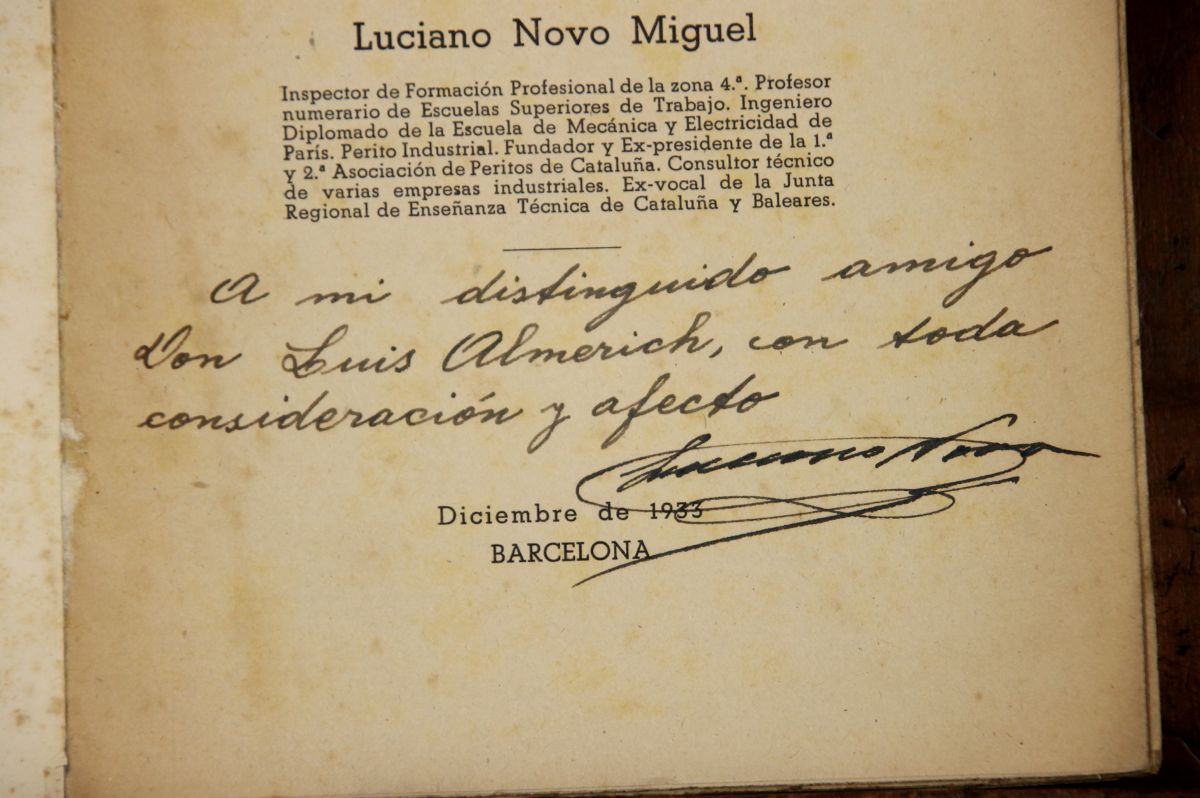 Luciano Novo Miguel
Inspector de Formación Profesional de la zona 4.ª. Profesor
numerario de Escuelas Superiores de Trabajo. Ingeniero
Diplomado de la Escuela de Mecánica y Electricidad de
París. Perito Industrial. Fundador y Ex-presidente de la 1.ª
y 2.ª Asociación de Peritos de Cataluña. Consultor técnico
de varias empresas industriales. Ex-vocal de la Junta
Regional de Enseñanza Técnica de Cataluña y Baleares.
A mi distinguido amigo
Don Luis Almerich, con toda
consideración y afecto
Luciano Novo
Diciembre de 1933
BARCELONA